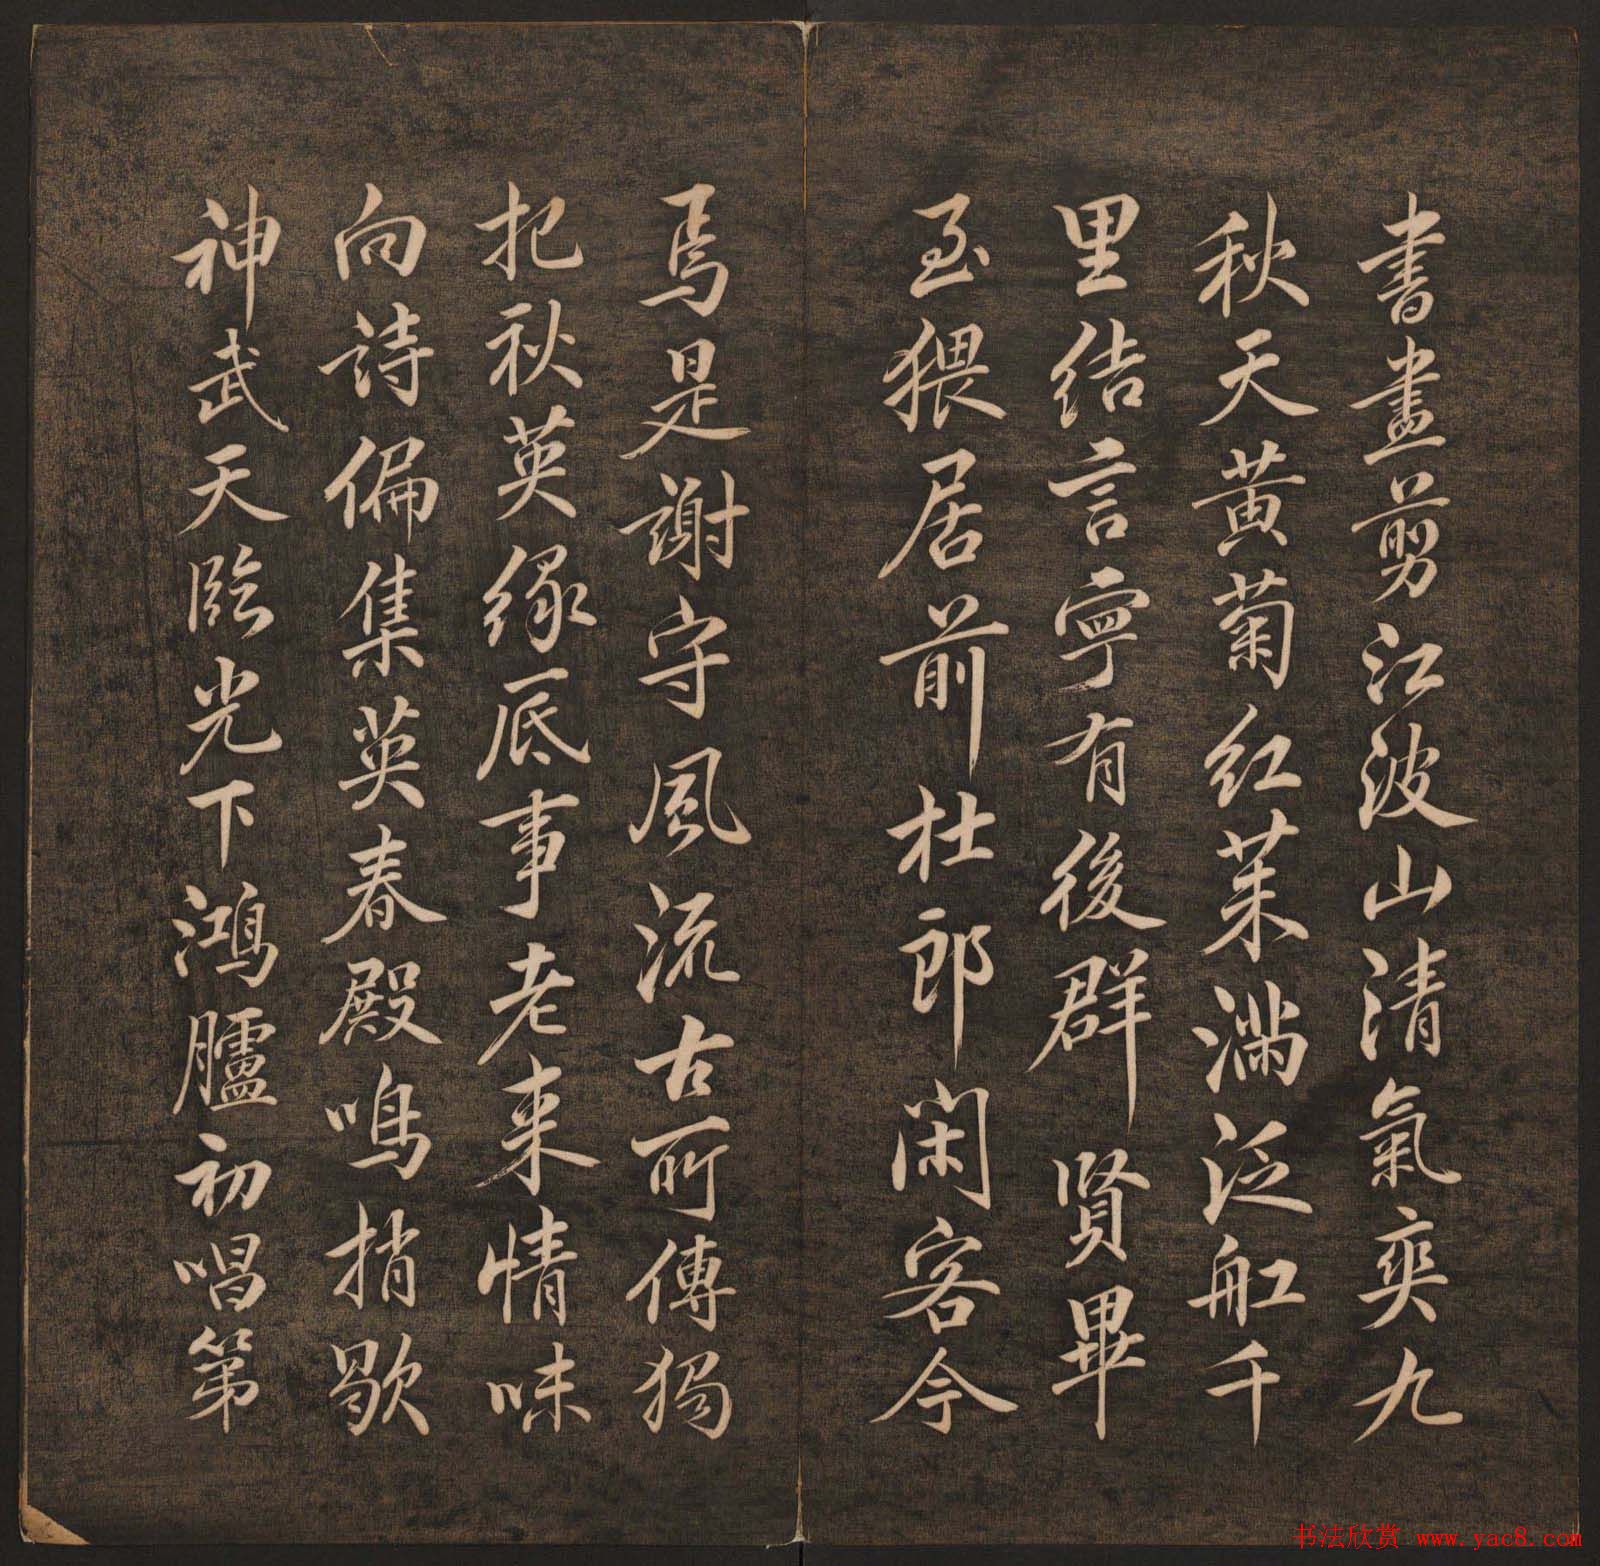 書畫剪江波山清氣爽九
秋天黃菊紅茱滿泛舡千
里結言寧有後群賢畢
至猥居前杜郎閑客今
焉是謝守風流古所傳獨
把秋英緣底事老來情味
向詩偏集英春殿鳴捎歇
神武天臨光下鴻臚初唱第
书法欣赏 www.yac8.com